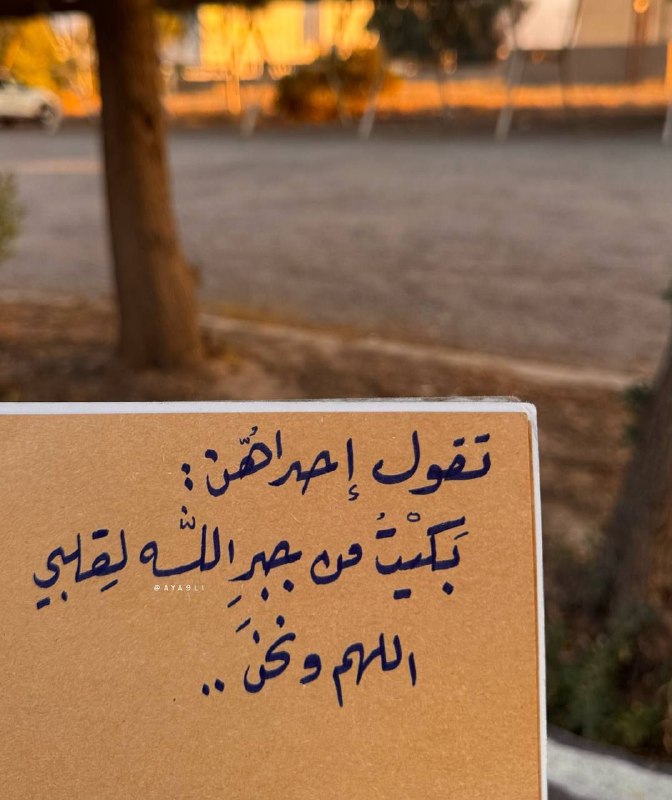 تقول إحداهُنّ:
بَكَيْتُ من جبرِ اللّٰه لِقلبي
@AYA9LI
اللهم ونحنَ ..